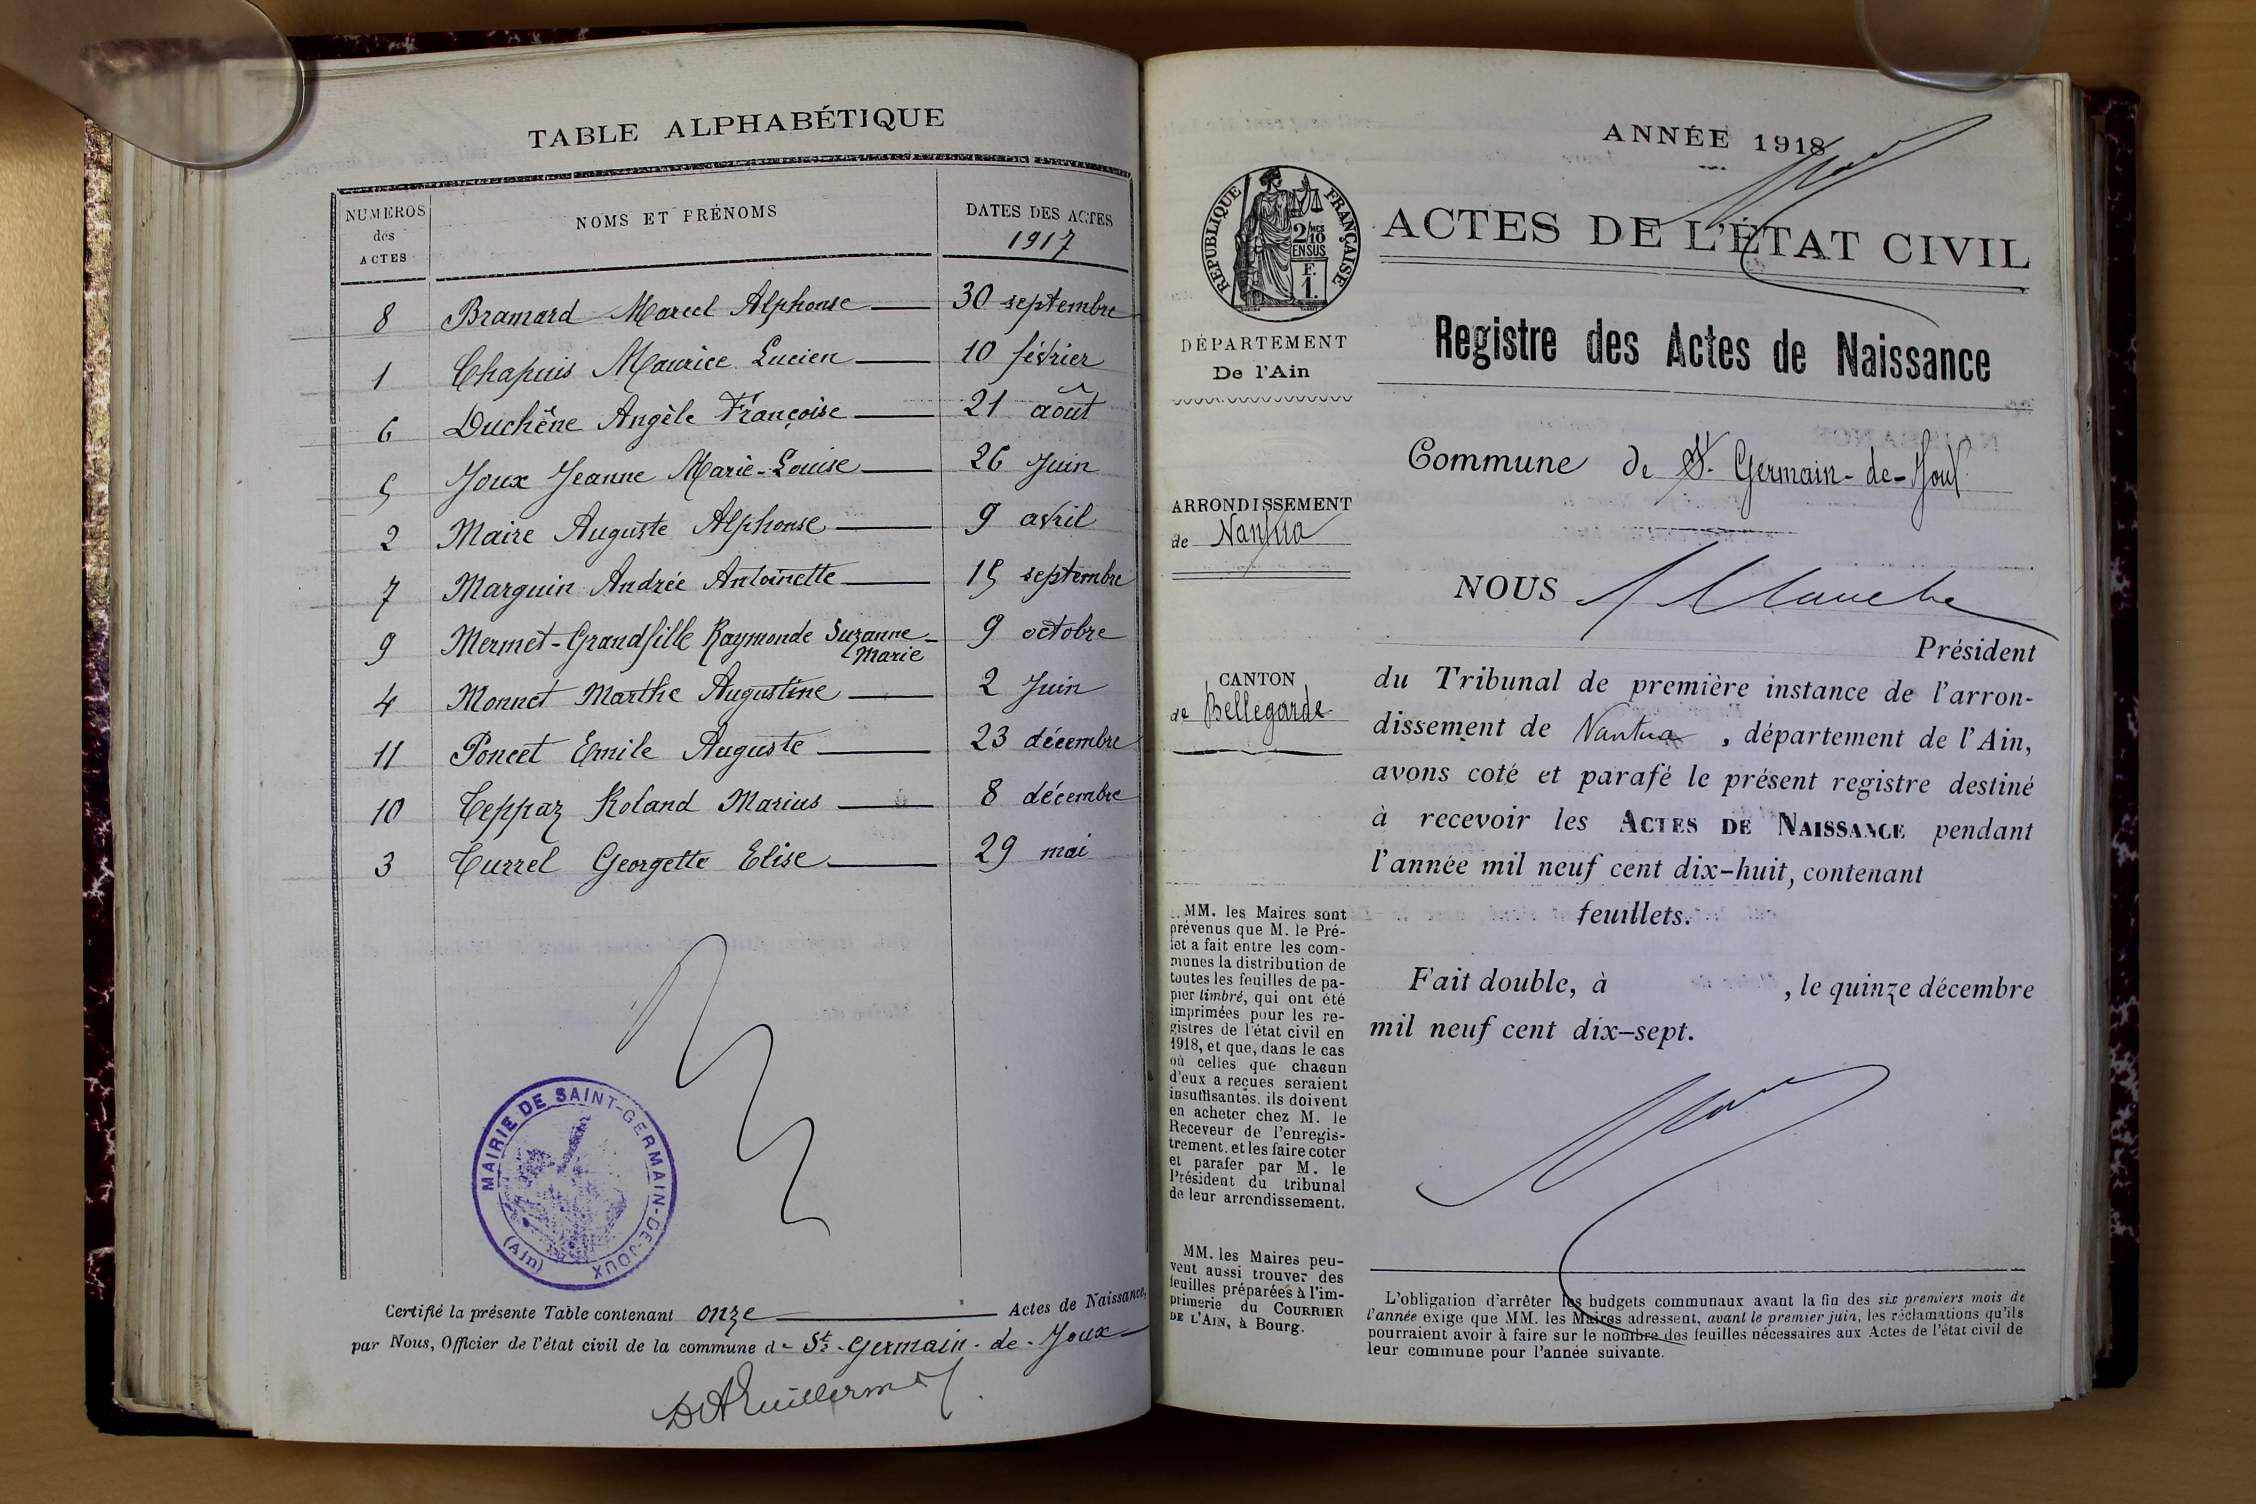 TABLE ALPHABÉTIQUE
NUMEROS
des
ACTES
NOMS ET PRÉNOMS
DATES DES ACTES
1917
8 Bramard Marcel Alphonse 30 septembre
1 Chapuis Maurice Lucien 10 février
6 Duchêne Angèle Françoise 21 août
5 Joux Jeanne Marie-Louise 26 Juin
2 Maire Auguste Alphonse 9 avril
7 Marguin Andrée Antoinette 15 septembre
9 Mermet-Grandfille Raymonde Suzanne- 9 octobre
Marie
4 Monnet Marthe Augustine 2 Juin
11 Poncet Emile Auguste 23 décembre
10 Teppaz Roland Marius 8 décembre
3 Turrel Georgette Elise 29 mai
MAIRIE DE SAINT-GERMAIN-DE-JOUX
(Ain)
Certifié la présente Table contenant onze Actes de Naissance,
par Nous, Officier de l'état civil de la commune de St-Germain-de-Joux
ANNÉE 1918
RÉPUBLIQUE FRANÇAISE
2/10
MES
EN SUS
F.
1.
ACTES DE L'ÉTAT CIVIL
Registre des Actes de Naissance
DÉPARTEMENT
De l'Ain
Commune de St-Germain-de-Joux
ARRONDISSEMENT
de Nantua
NOUS
Président
CANTON
de Bellegarde
du Tribunal de première instance de l'arron-
dissement de Nantua, département de l'Ain,
avons coté et parafé le présent registre destiné
à recevoir les ACTES DE NAISSANCE pendant
l'année mil neuf cent dix-huit, contenant
feuillets.
Fait double, à , le quinze décembre
mil neuf cent dix-sept.
MM. les Maires sont
prévenus que M. le Pré-
fet a fait entre les com-
munes la distribution de
toutes les feuilles de pa-
pier timbré, qui ont été
imprimées pour les re-
gistres de l'état civil en
1918, et que, dans le cas
où celles que chacun
d'eux a reçues seraient
insuffisantes, ils doivent
en acheter chez M. le
Receveur de l'enregis-
trement, et les faire coter
et parafer par M. le
Président du tribunal
de leur arrondissement.
MM. les Maires peu-
vent aussi trouver des
feuilles préparées à l'im-
primerie du COURRIER
DE L'AIN, à Bourg.
L'obligation d'arrêter les budgets communaux avant la fin des six premiers mois de
l'année exige que MM. les Maires adressent, avant le premier juin, les réclamations qu'ils
pourraient avoir à faire sur le nombre des feuilles nécessaires aux Actes de l'état civil de
leur commune pour l'année suivante.